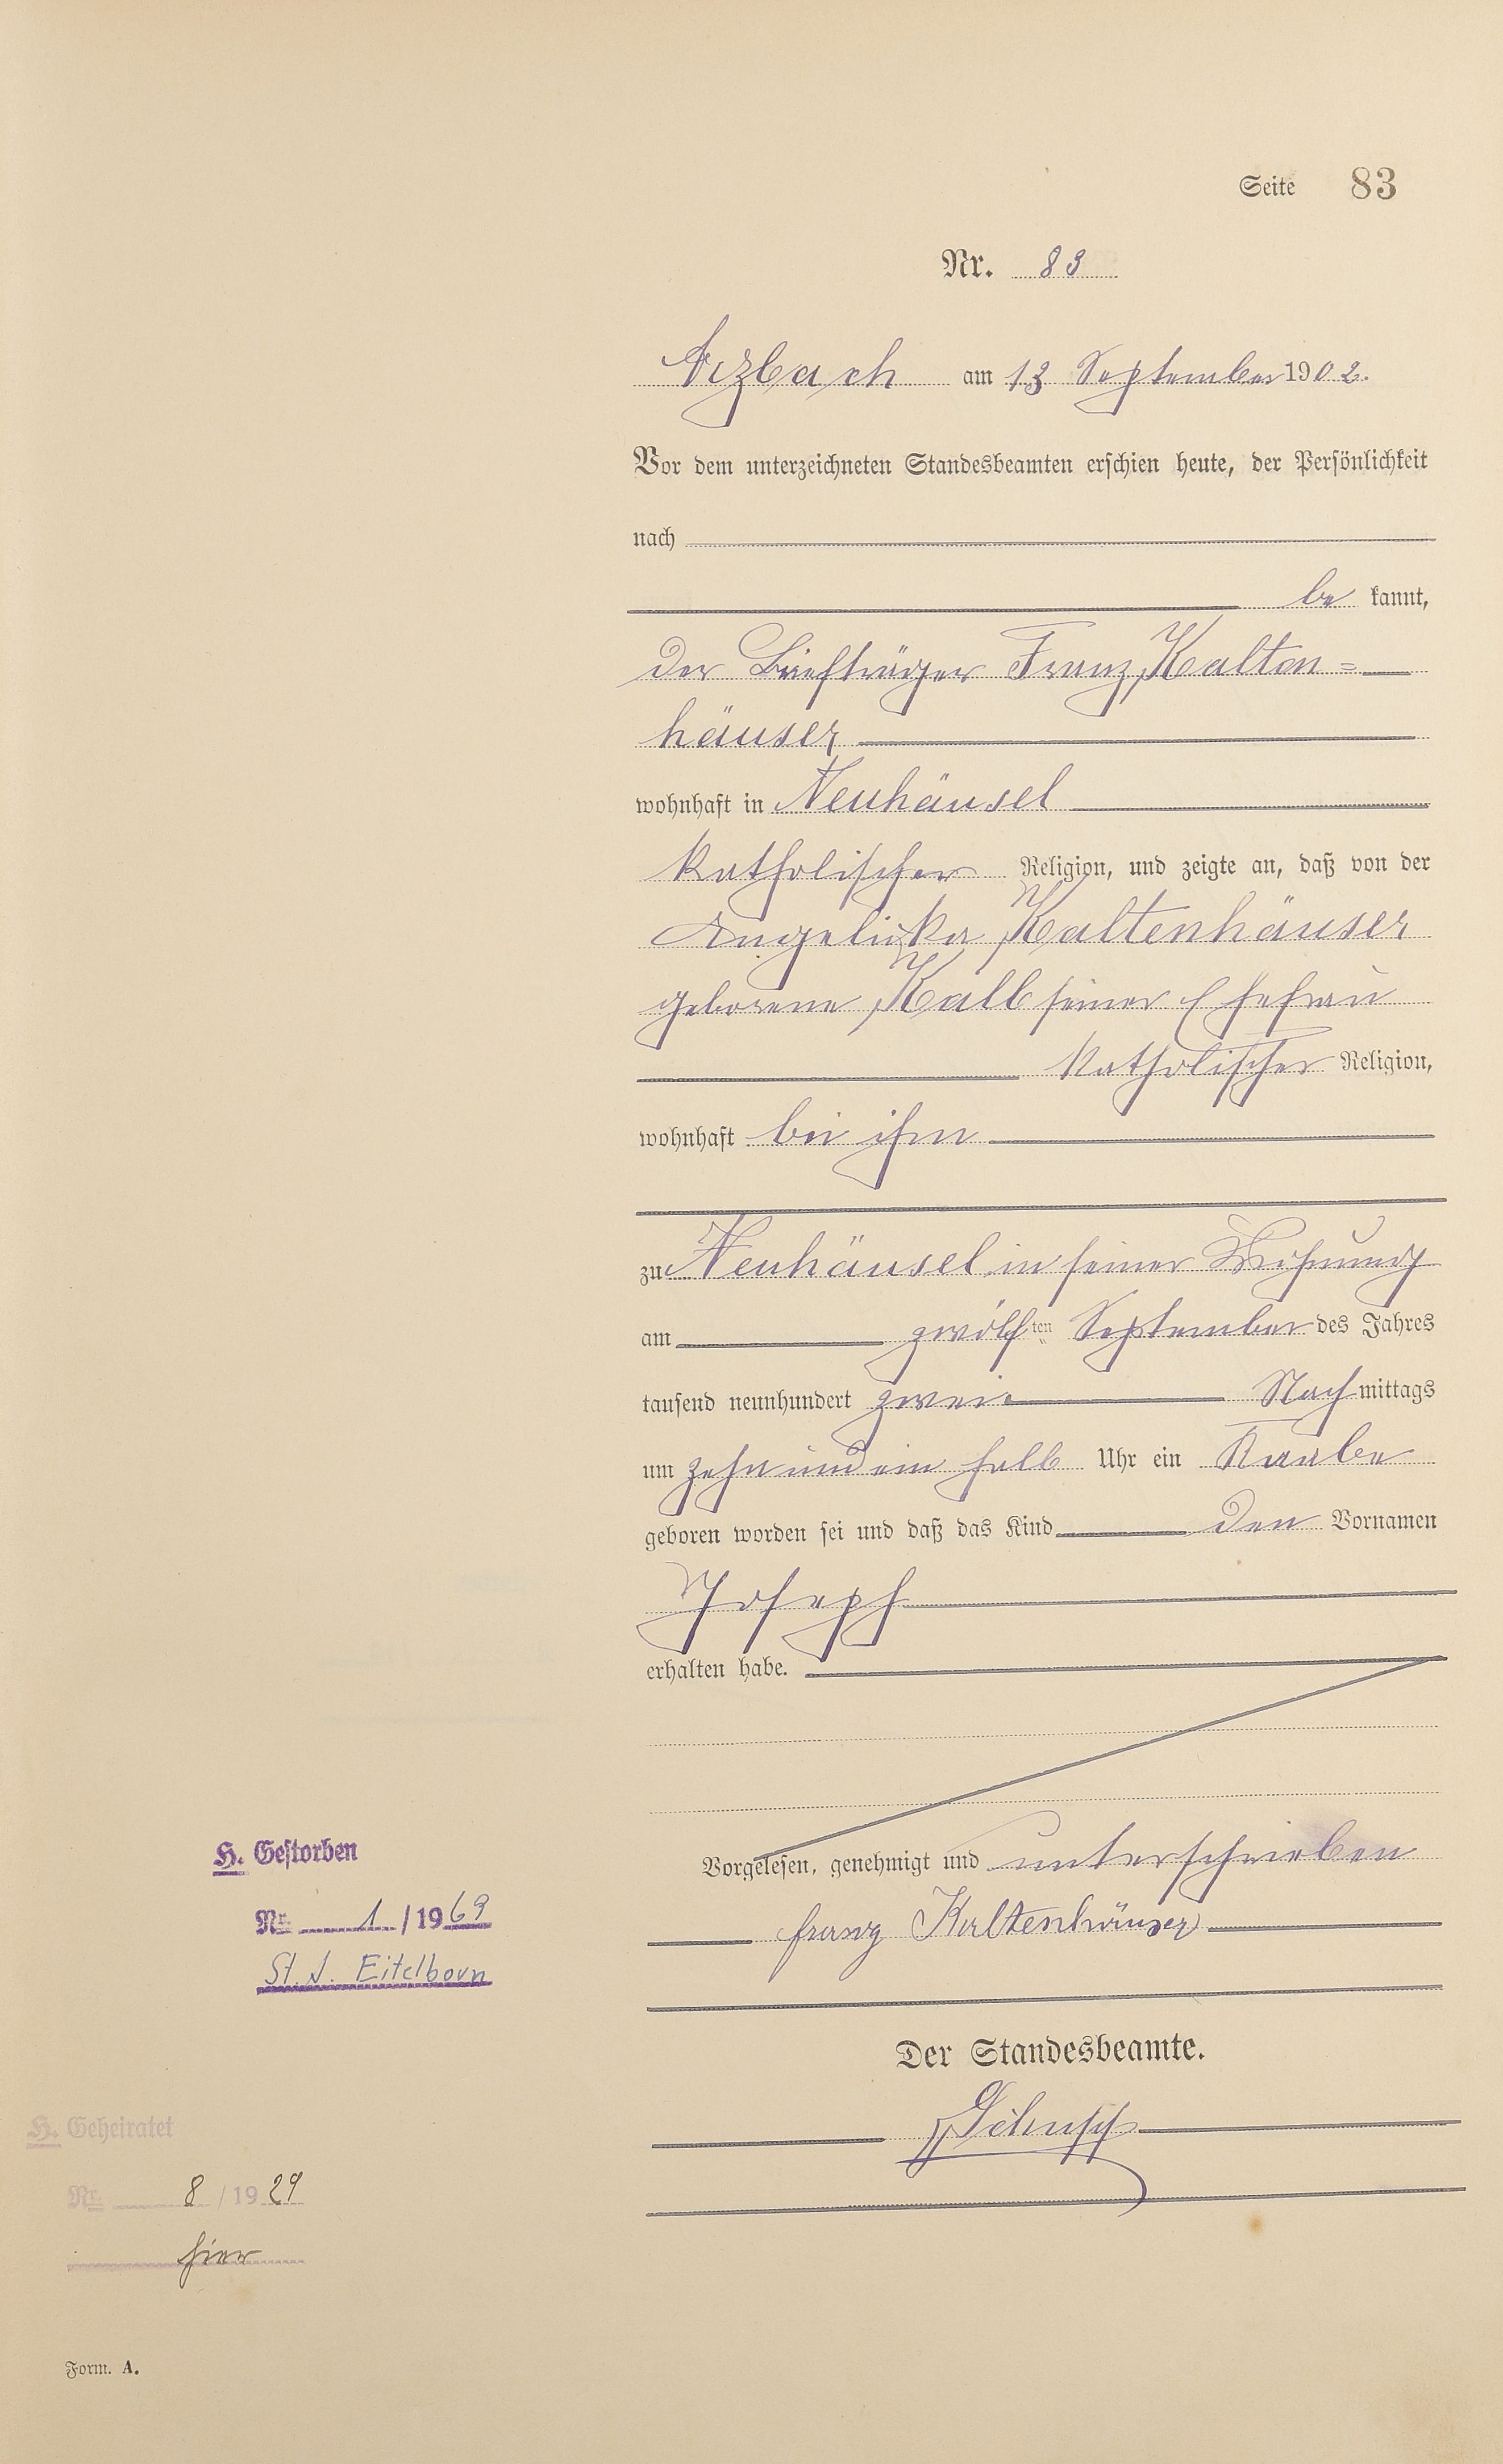 Seite 83
Nr. 83
Arzbach am 13 September 1902.
Vor dem unterzeichneten Standesbeamten erschien heute, der Persönlichkeit
nach
be kannt,
der Briefträger Franz Kalten=
häuser
wohnhaft in Neuhäusel
katholischer Religion, und zeigte an, daß von der
Angelika Kaltenhäuser
geborene Kalb seiner Ehefrau
katholischer Religion,
wohnhaft bei ihm
zu Neuhäusel in seiner Wohnung
am zwölften September des Jahres
tausend neunhundert zwei Nachmittags
um zehn und ein halb Uhr ein Knabe
geboren worden sei und daß das Kind den Vornamen
Joseph
erhalten habe.
Vorgelesen, genehmigt und unterschrieben
Franz Kaltenhäuser
Der Standesbeamte.
H. Gestorben
Nr. 1/1969
St. A. Eitelborn
H. Geheiratet
Nr. 8/1929
hier
Form. A.